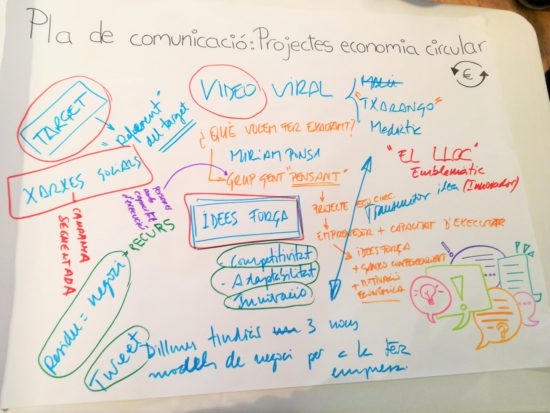 Pla de comunicació: Projectes economia circular
€
TARGET
VIDEO VIRAL
"TXARANGO"
Mediàtic
del target
¿QUÈ VOLEM FER EXACTAMENT?
MIRIAM PONSA
"EL LLOC"
Emblemàtic
idea (Innovador)
XARXES SOCIALS
GRUP GENT "PENSANT"
Transmetor
PROJECTE
EMPRENEDOR + CAPACITAT D'EXECUTAR
CAMPANYA
SEGMENTADA
RECURS
IDEES FORÇA
- Competitivitat
- Adaptabilitat
Innovació
IDEES FORÇA
ECONÒMICA
Residu = negoci
Tweet
Dilluns tindràs 3 nous
models de negoci per a la teva
empresa